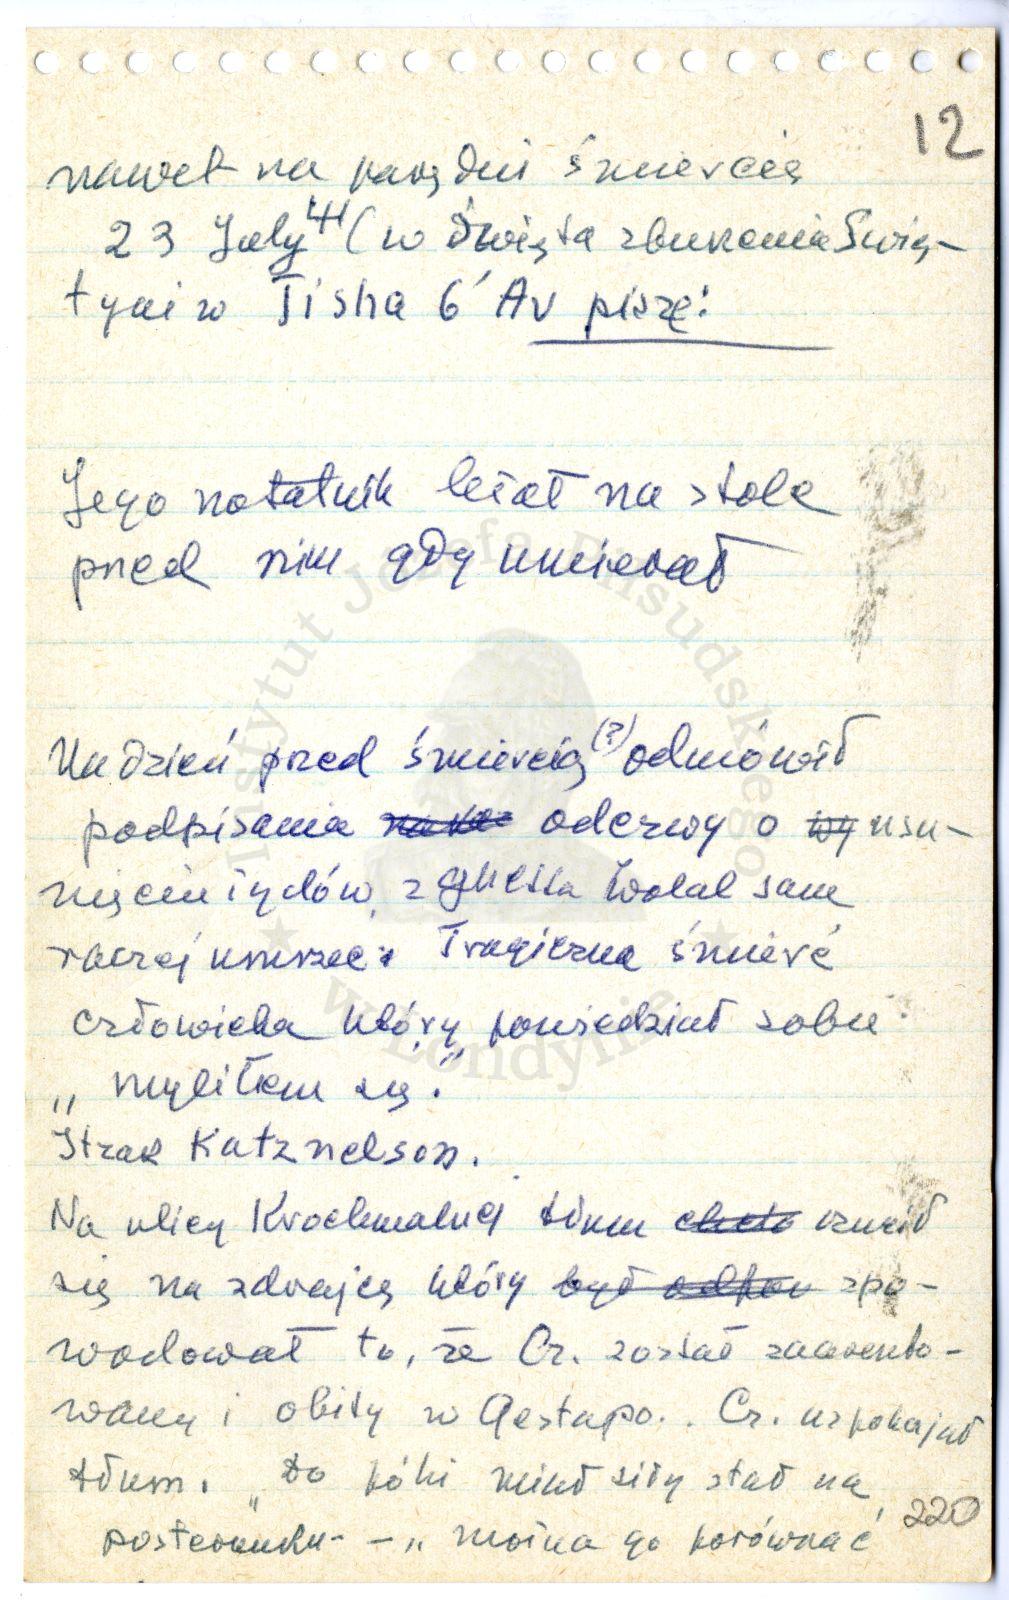 12
nawet na parę dni śmiercią
23 July 41 (w święta zburzenia Świą-
tyni w Tisha b'Av piszę:
Jego notatnik leżał na stole
przed nim gdy umierał
Na dzień przed śmiercią (?) odmówił
podpisania odezwy o wy usu-
nięciu Żydów z ghetta wolał sam
raczej umrzeć. Tragiczna śmierć
człowieka który powiedział sobie:
„myliłem się."
Itzak Katznelson.
Na ulicy Krochmalnej tłum chciał rzucił
się na zdrajcę który był odpow spo-
wodował to, że Cz. został zaareszto-
wany i obity w Gestapo.. Cz. uspokajał
tłum. „do póki miał siły stał na
posterunku - - „można go porównać
220
Instytut Józefa Piłsudskiego
w Londynie